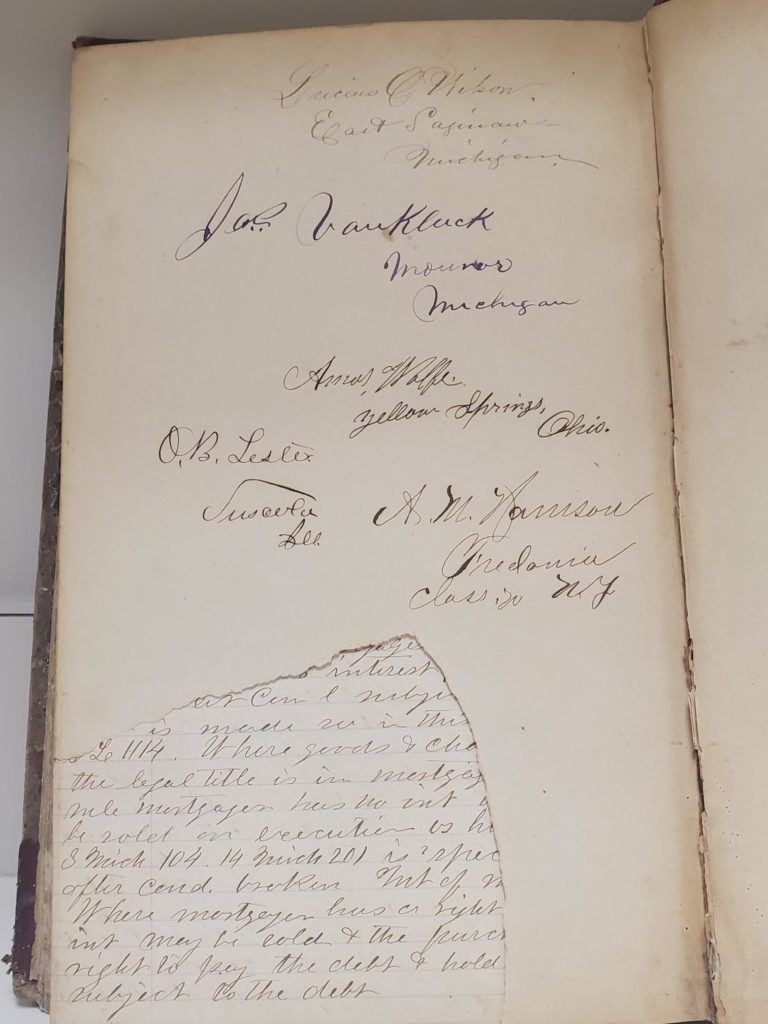 Lucius C Wilson.
East Saginaw
Michigan.
Jas. VanKluck
Monroe
Michigan
Amos Wolfe.
Yellow Springs,
Ohio.
O. B. Lester
Tuscola
Ill.
A. M. Harrison
Fredonia
Class N Y
interest
subje
is made in this
1114. Where goods & cha
the legal title is in mortgag
rule mortgager has no int
be sold on execution
3 Mich 104. 14 Mich 201 is spec
after cond. broken Int of m
Where mortgager has a right
int may be sold & the purch
right to pay the debt & hold
subject to the debt